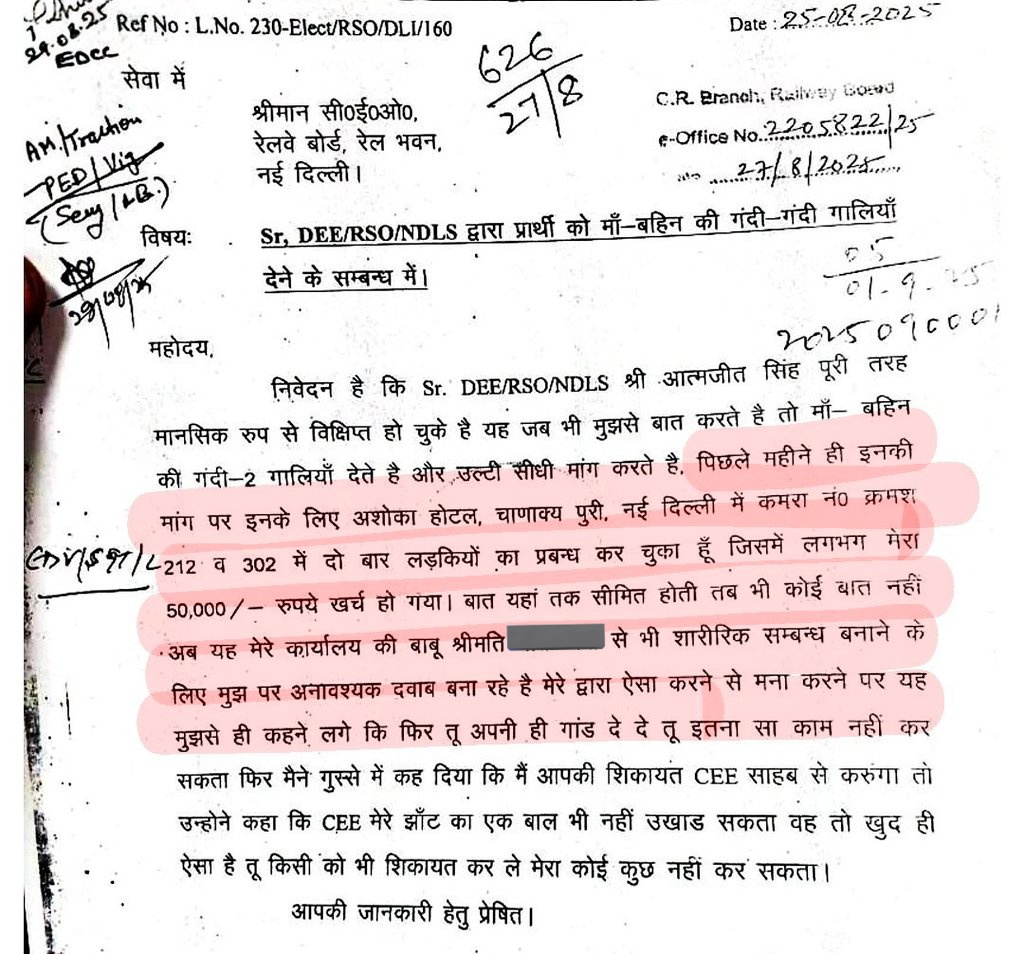 29.08.25
EDCC
Ref No : L.No. 230-Elect/RSO/DLI/160
Date : 25-08-2025
626
27/8
सेवा में
श्रीमान सी0ई0ओ0,
रेलवे बोर्ड, रेल भवन,
नई दिल्ली।
C.R. Branch, Railway Board
e-Office No. 2205822/25
27/8/2025
AM/Traction
PED/Vig
विषयः
Sr, DEE/RSO/NDLS द्वारा प्रार्थी को माँ–बहिन की गंदी–गंदी गालियाँ
देने के सम्बन्ध में।
05
01-9-25
29/08/25
2025090001
महोदय,
निवेदन है कि Sr. DEE/RSO/NDLS श्री आत्मजीत सिंह पूरी तरह
मानसिक रुप से विक्षिप्त हो चुके है यह जब भी मुझसे बात करते है तो माँ– बहिन
की गंदी–2 गालियाँ देते है और उल्टी सीधी मांग करते है, पिछले महीने ही इनकी
मांग पर इनके लिए अशोका होटल, चाणाक्य पुरी, नई दिल्ली में कमरा नं0 क्रमश
212 व 302 में दो बार लड़कियों का प्रबन्ध कर चुका हूँ जिसमें लगभग मेरा
50,000/– रुपये खर्च हो गया। बात यहां तक सीमित होती तब भी कोई बात नहीं
अब यह मेरे कार्यालय की बाबू श्रीमति से भी शारीरिक सम्बन्ध बनाने के
लिए मुझ पर अनावश्यक दवाब बना रहे है मेरे द्वारा ऐसा करने से मना करने पर यह
मुझसे ही कहने लगे कि फिर तू अपनी ही गांड दे दे तू इतना सा काम नहीं कर
सकता फिर मैने गुस्से में कह दिया कि मैं आपकी शिकायत CEE साहब से करुंगा तो
उन्होने कहा कि CEE मेरे झाँट का एक बाल भी नहीं उखाड सकता वह तो खुद ही
ऐसा है तू किसी को भी शिकायत कर ले मेरा कोई कुछ नहीं कर सकता।
आपकी जानकारी हेतु प्रेषित।